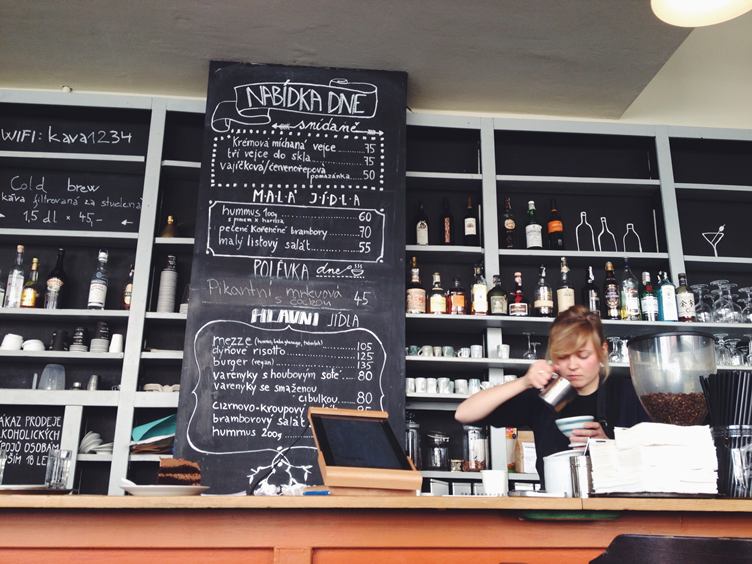 WIFI: kava1234
Cold brew
káva filtrovaná za studena
1,5 dl × 45,-
ZÁKAZ PRODEJE
ALKOHOLICKÝCH
NÁPOJŮ OSOBÁM
18 LET
NABÍDKA DNE
snídaně
Krémová míchaná vejce 75
tři vejce do skla 75
vajíčková/červenořepová
pomazánka 50
MALÁ JÍDLA
hummus 100g 60
pečené kořeněné brambory 70
malý listový salát 55
POLÉVKA dne
Pikantní mrkvová 45
s čočkou
HLAVNÍ JÍDLA
mezze 105
dýňové risotto 125
burger (vegan) 135
varenyky s houbovým soté 80
varenyky se smaženou
cibulkou 80
cizrnovo-kroupový
bramborový salát
hummus 200g